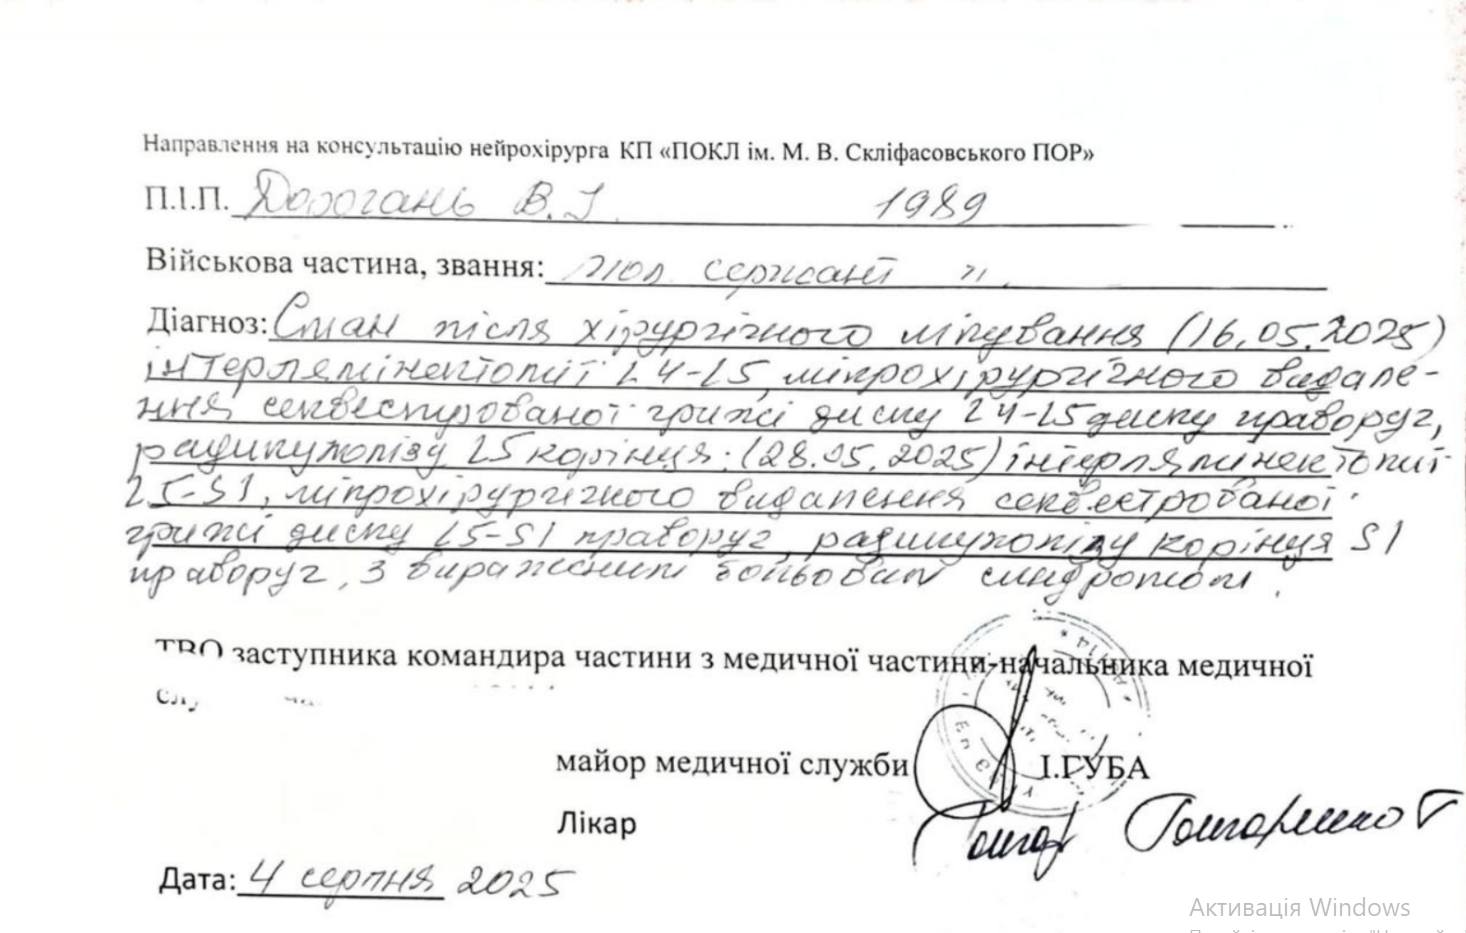 Направлення на консультацію нейрохірурга КП «ПОКЛ ім. М. В. Скліфасовського ПОР»
П.І.П. Дорогань В. І. 1989
Військова частина, звання: мол сержант
Діагноз: Стан після хірургічного лікування (16.05.2025)
інтерлямінектомії L4-L5, мікрохірургічного видале-
ння секвестрованої грижі диску L4-L5 диску праворуч,
радикулолізу L5 корінця. (28.05.2025) інтерлямінектомії
L5-S1, мікрохірургічного видалення секвестрованої
грижі диску L5-S1 праворуч, радикулолізу корінця S1
праворуч, з вираженим больовим синдромом.
ТВО заступника командира частини з медичної частини-начальника медичної
майор медичної служби І.ГУБА
Лікар
Дата: 4 серпня 2025
Активація Windows